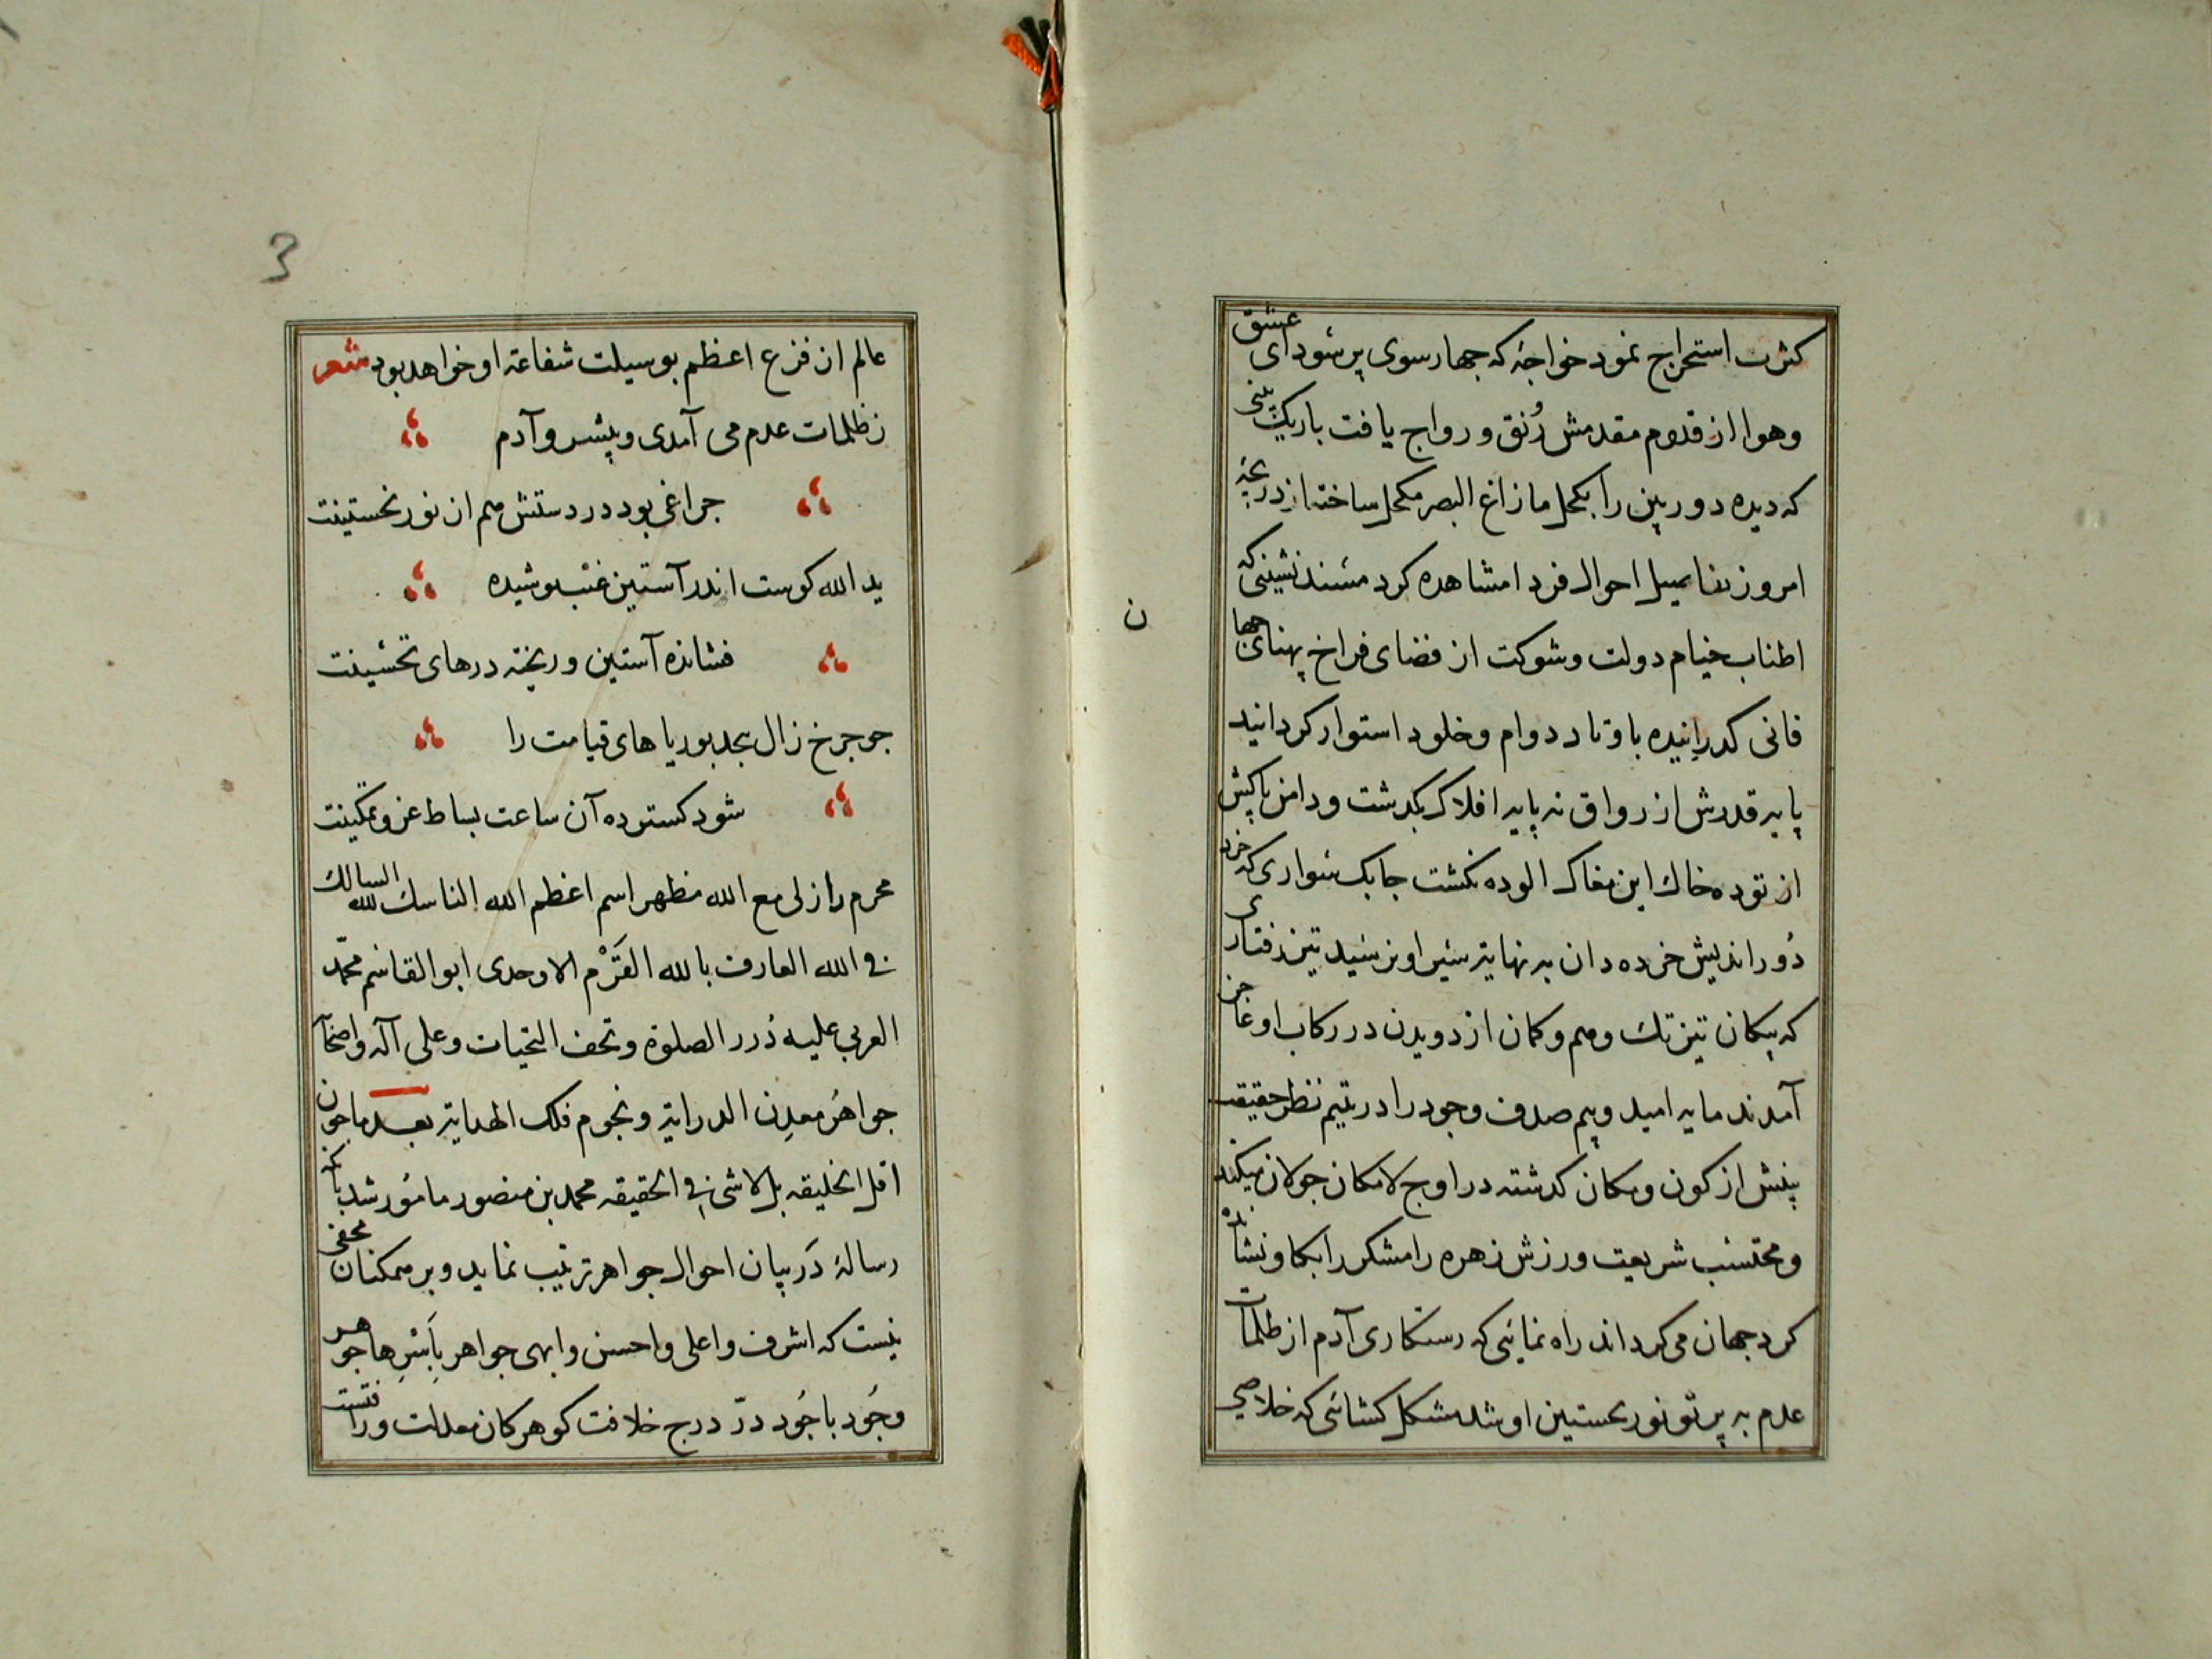 کثرت استخراج نمود خواجۀ که جهار سوی پر سودای عشق
وهوا از قدوم مقدمش رُنق و رواج یافت باریک بینی
که دیده دوربین را بکحل مازاغ البصر مکحل ساخته از دریچۀ
امروز تفاصیل احوال فردا مشاهده کرد مسند نشینی که
اطناب خیام دولت وشوکت از فضای فراخ پهنای جها
ن
فانی کدرانیده باوتاد دوام وخلود استوار کردانید
پایه قدرش از رواق نه پایه افلاک بکدشت ودامن پاکش
از توده خاک این مغاک الوده نکشت جابک سواری که خرد
دُور اندیش خرده دان به نهایة سیر او نرسید تیز رفتاری
که پیکان تیزتک وهم وکمان از دویدن در رکاب او عاجز
آمدند مایه امید وبیم صدف وجود را در یتیم نظر حقیقت
بینش از کون ومکان کدشته در اوج لامکان جولان میکند
ومحتسب شریعت ورزش زهره رامشکر را بکاو نشانده
کرد جهان می کرداند راه نمایئی که رستکاری آدم از ظلمات
عدم به پرتو نور نخستین او شد مشکل کشائی که خلاصی
3
عالم از فزع اعظم بوسیلت شفاعة او خواهد بود شعر
زظلمات عدم می آمدی وپیش رو آدم
جراغی بود در دستش هم از نور نخستینت
ید الله کوست اندر آستین غیب پوشیده
فشانده آستین وریخته درهای تحسینت
جو جرخ زال بیجد بوریاهای قیامت را
شود کسترده آن ساعت بساط عز وتمکینت
محرم راز لی مع الله مظهر اسم اعظم الله الناسك لله السالك
فی الله العارف بالله القَرْم الاوحدی ابو القاسم محمّد
العربی علیه دُرر الصلوة وتحف التحیات وعلی آله واصحابه
جواهرُ معدِن الدرایة ونجوم فلک الهدایة بعد ما جون
اقل الخلیقه بل لاشئ فی الحقیقه محمد بن منصور مامُور شد بانکه
رسالۀ دَر بیان احوال جواهر ترتیب نماید وبر همکنان مخفی
نیست که اشرف واعلی واحسن وابهی جواهر بِأَسْرِها جوهر
وجُود باجُود درّ درج خلافت کوهر کان معدلت ورافتست